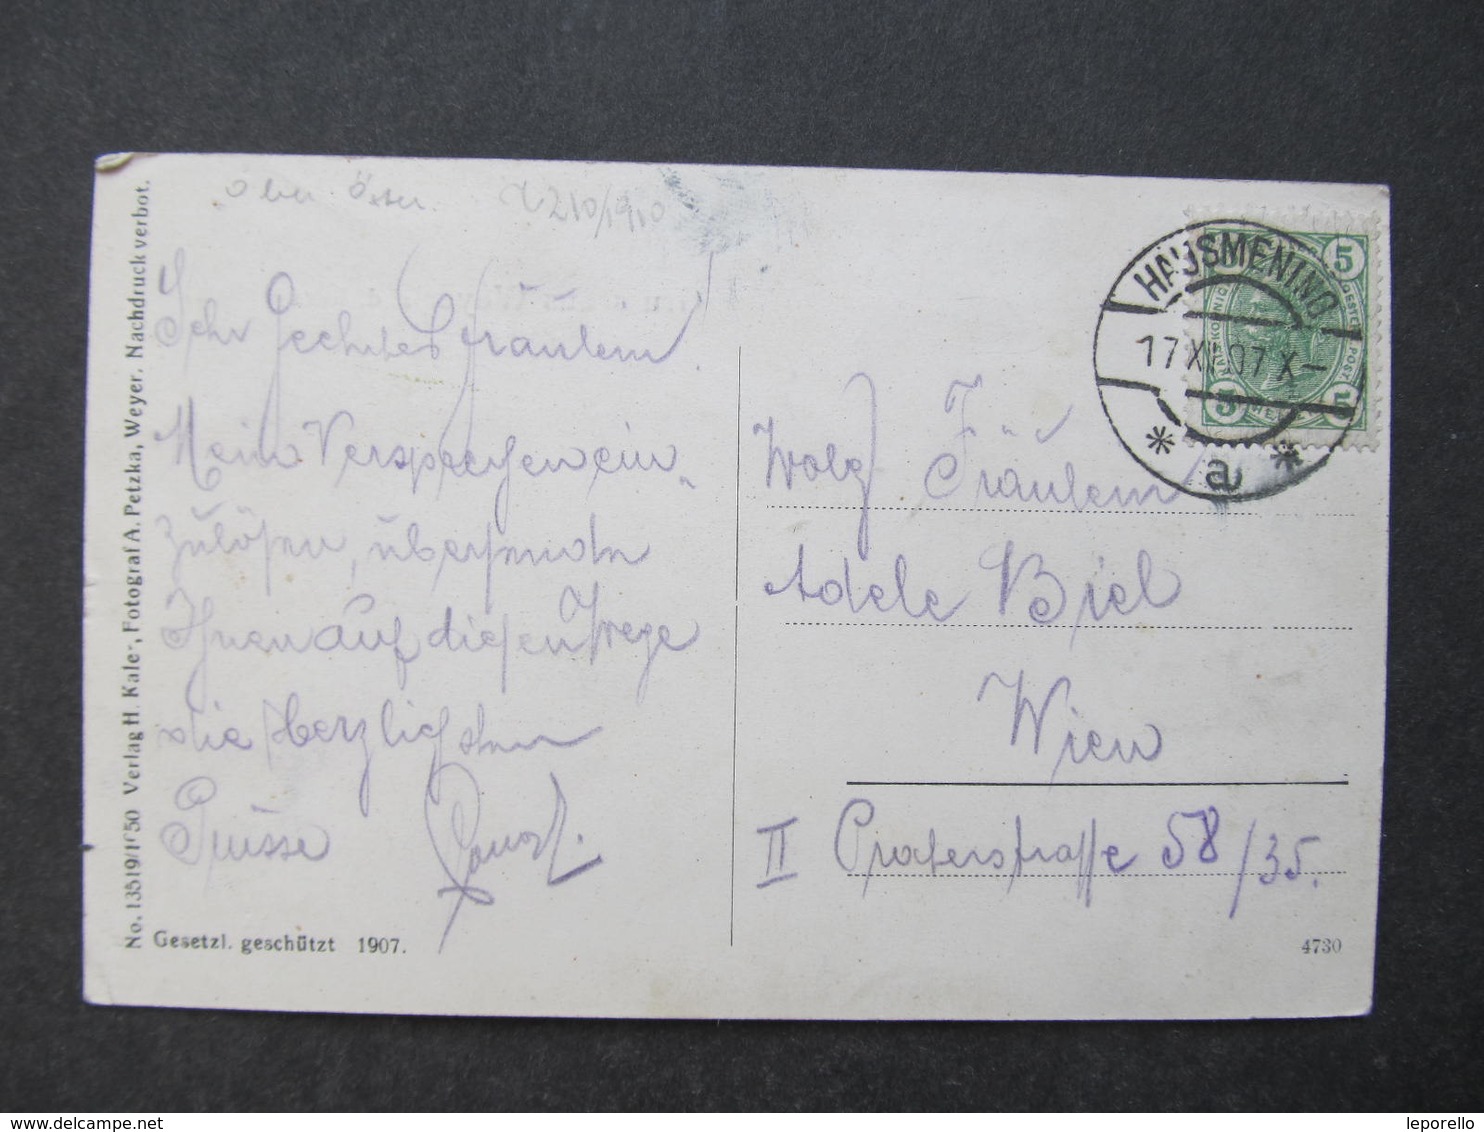 No. 13519/1f50 Verlag H. Kaler, Fotograf A. Petzka, Weyer. Nachdruck verbot.
Ober Öster.
Sehr Geehrtes Fräulein
Mein Versprechen ein
zulösen, übersende
Ihnen auf diesen Wege
die Herzlichsten
Grüsse
Gesetzl. geschützt 1907.
HAUSMENING
17 XI 07 X
a
5
5
Wolg Fräulein
Adele Biel
Wien
II Praterstraße 58/35.
4730
www.delcampe.net
leporello